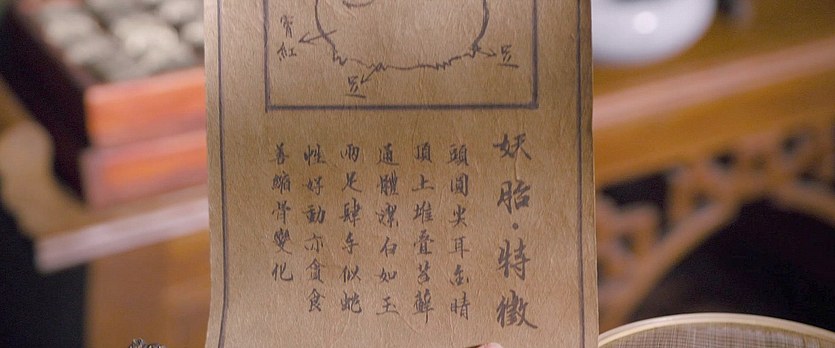 足
足
紅
妖胎·特徵
頭圓尖耳金睛
頂上堆疊苔蘚
通體潔白如玉
兩足肆手似蛇
性好動亦貪食
善縮骨變化